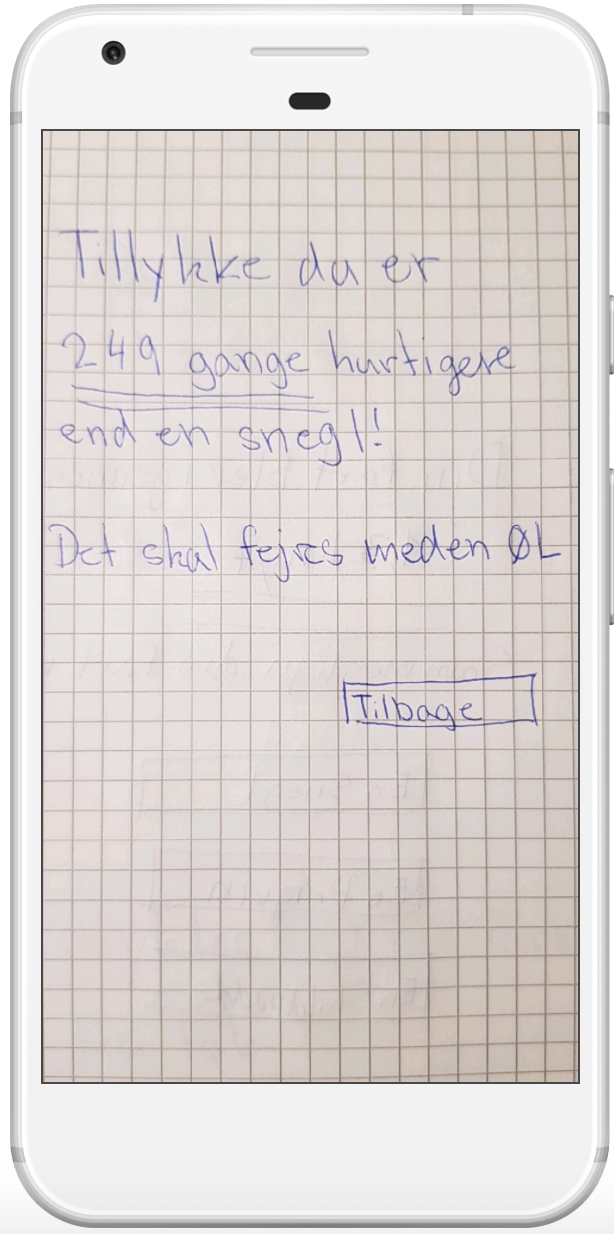 Tillykke du er
249 gange hurtigere
end en snegl!
Det skal fejres meden ØL
Tilbage